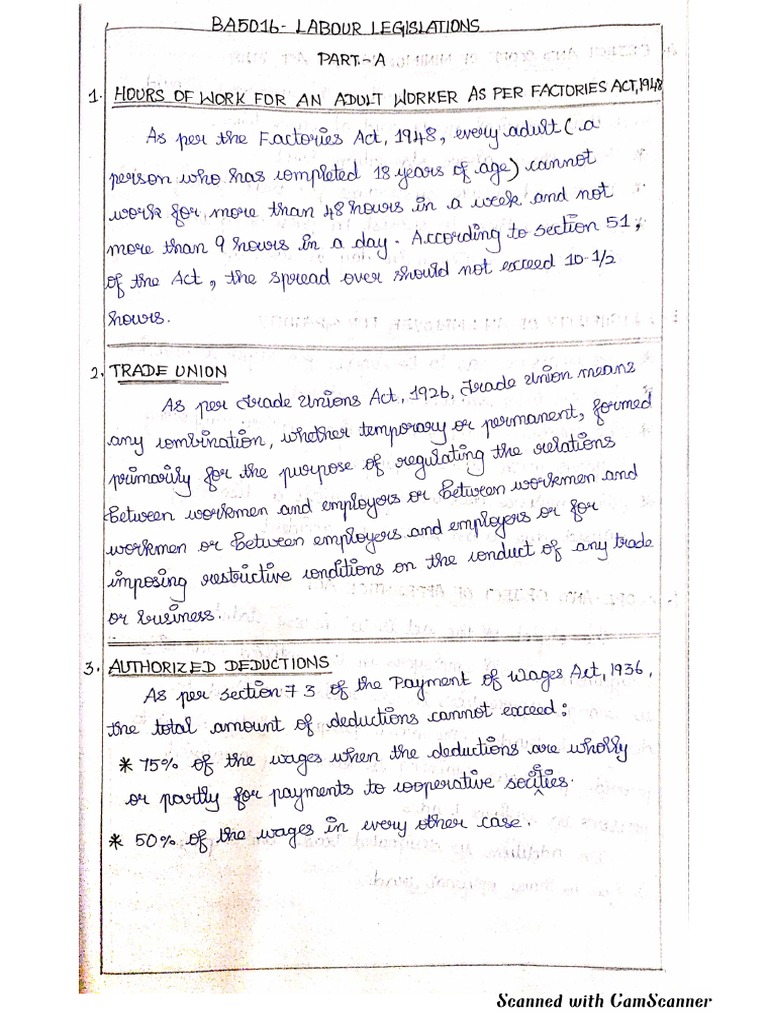 BA5016- LABOUR LEGISLATIONS
PART-A
1. HOURS OF WORK FOR AN ADULT WORKER AS PER FACTORIES ACT,1948
As per the Factories Act, 1948, every adult (a
person who has completed 18 years of age) cannot
work for more than 48 hours in a week and not
more than 9 hours in a day. According to section 51,
of the Act, the spread over should not exceed 10-1/2
hours.
2. TRADE UNION
As per Trade Unions Act, 1926, Trade Union means
any combination, whether temporary or permanent, formed
primarily for the purpose of regulating the relations
between workmen and employers or between workmen and
workmen or between employers and employers or for
imposing restrictive conditions on the conduct of any trade
or business.
3. AUTHORIZED DEDUCTIONS
As per section 7 3 of the Payment of Wages Act, 1936,
the total amount of deductions cannot exceed:
* 75% of the wages when the deductions are wholly
or partly for payments to cooperative societies.
* 50% of the wages in every other case.
Scanned with CamScanner